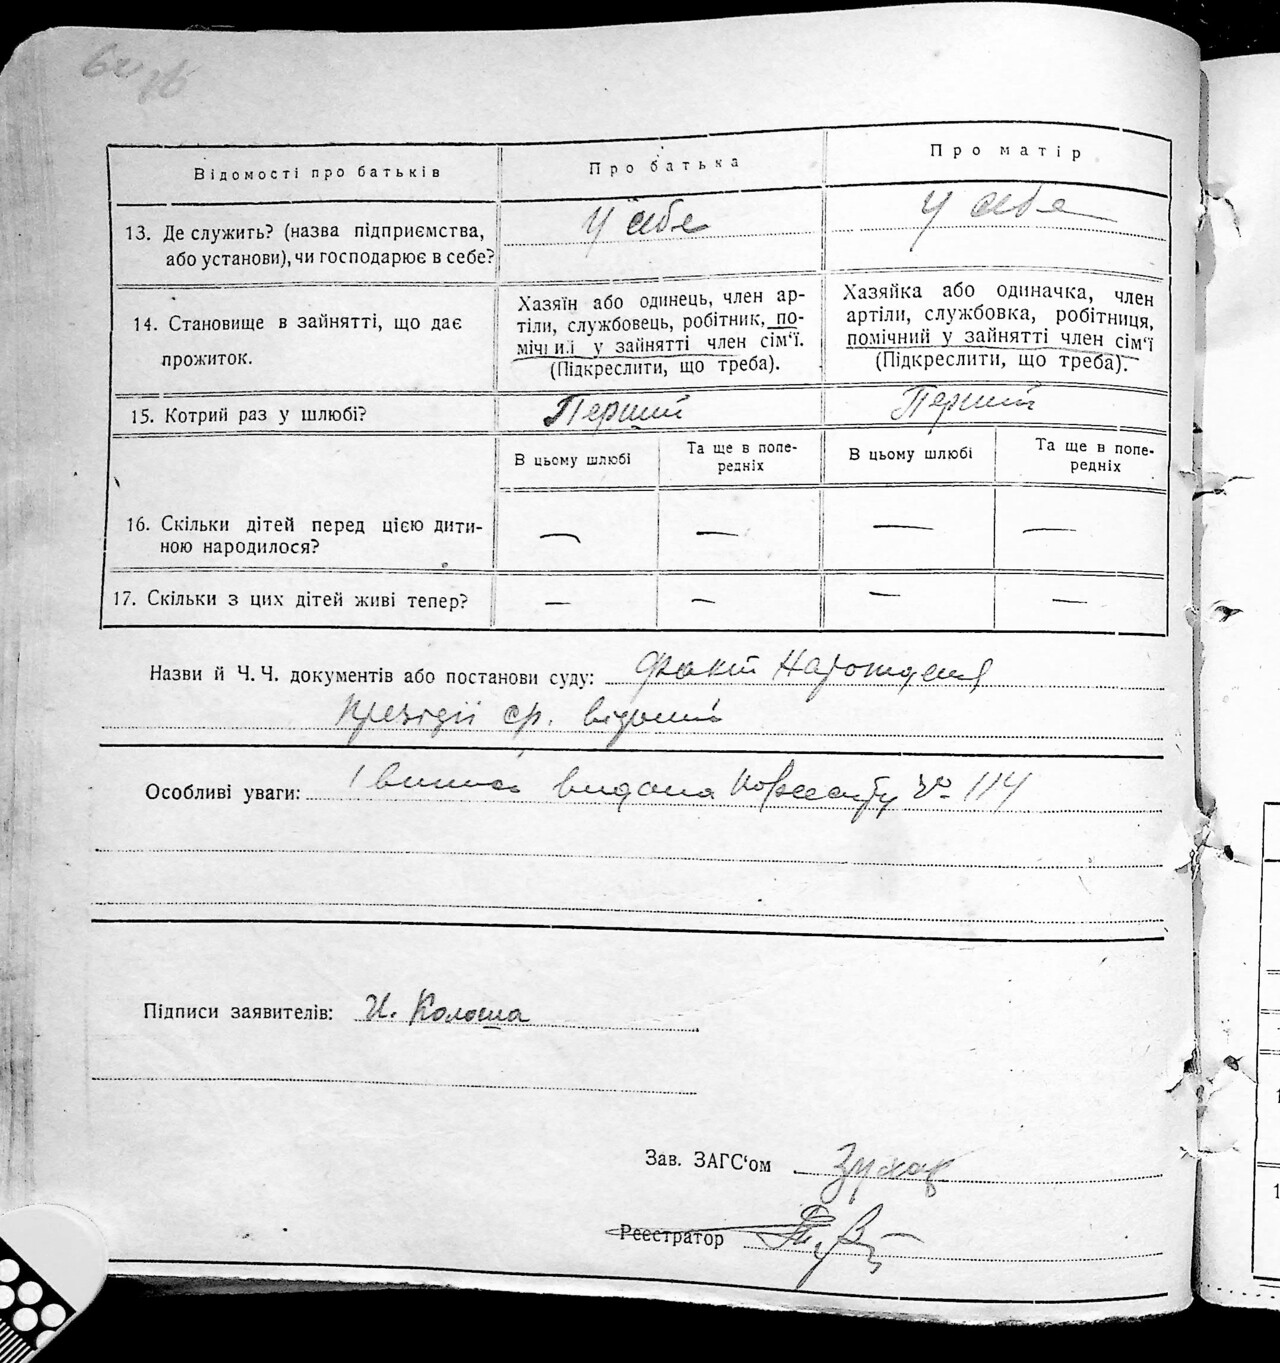 Відомості про батьків
Про батька
Про матір
13. Де служить? (назва підприємства,
або установи), чи господарює в себе?
У себе
У себе
14. Становище в зайнятті, що дає
прожиток.
Хазяїн або одинець, член ар-
тіли, службовець, робітник, по-
мічний у зайнятті член сім'ї.
(Підкреслити, що треба).
Хазяйка або одиначка, член
артіли, службовка, робітниця,
помічний у зайнятті член сім'ї
(Підкреслити, що треба).
15. Котрий раз у шлюбі?
Перший
Перший
В цьому шлюбі
Та ще в попе-
редніх
В цьому шлюбі
Та ще в попе-
редніх
16. Скільки дітей перед цією дити-
ною народилося?
— — — —
17. Скільки з цих дітей живі тепер?
— — — —
Назви й Ч. Ч. документів або постанови суду: Факт
Президії с/р. відомий
Особливі уваги: видана № 114
Підписи заявителів: И. Колоша
Зав. ЗАГС'ом
Реєстратор